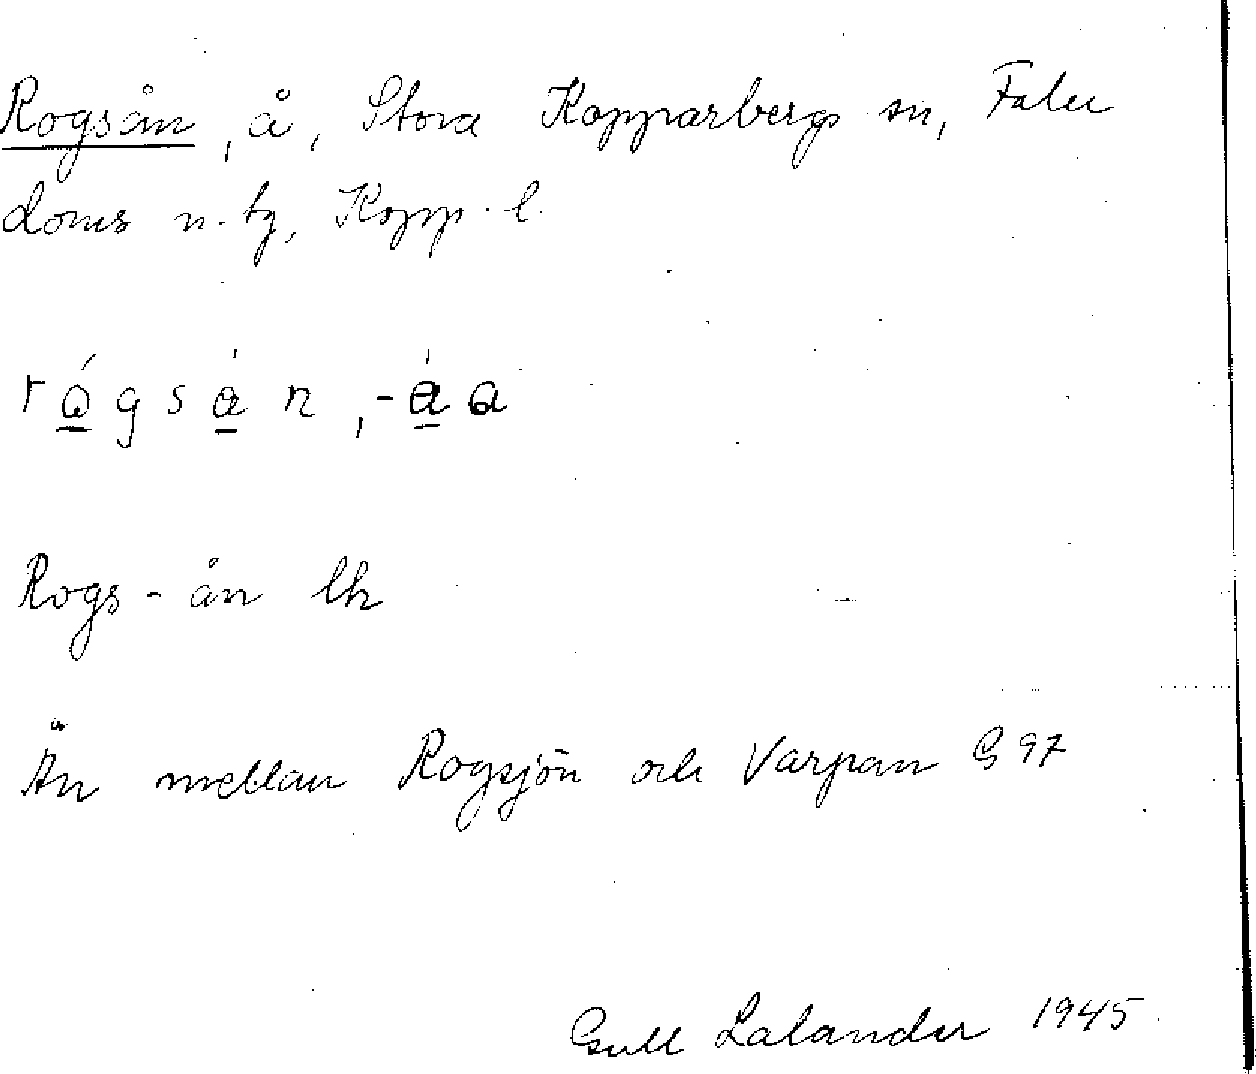 Rogsån, å, Stora Kopparbergs sn, Falu
doms n. tg, Kopp. l.
rågsån, -åa
Rogs-ån lh
Ån mellan Rogsjön och Varpan G 97
Gull Lalander 1945